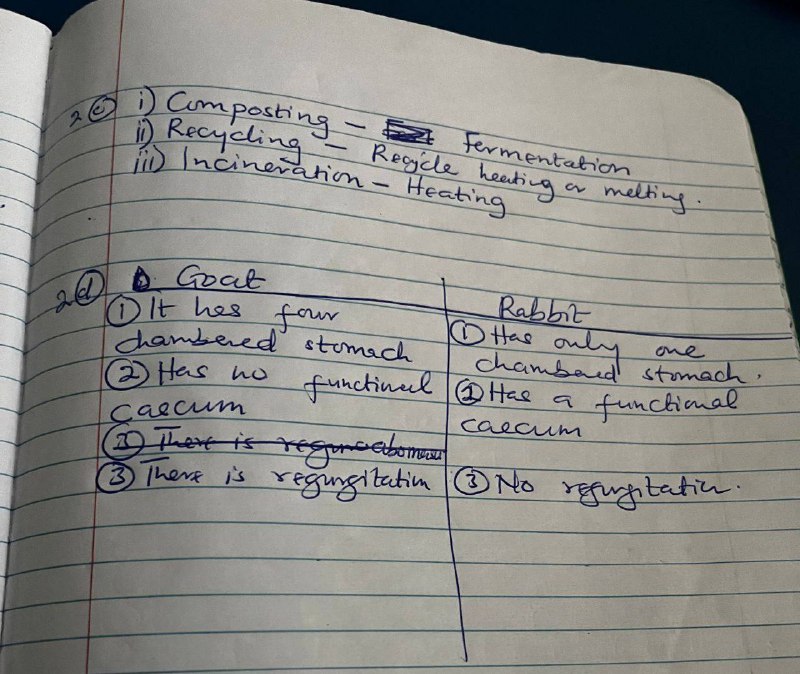 2(c) i) Composting - Fermentation
ii) Recycling - Recycle heating or melting.
iii) Incineration - Heating
2(d) Goat
Rabbit
① It has four
chambered stomach
② Has no functional
caecum
③ There is regurgitation
① Has only one
chambered stomach.
② Has a functional
caecum
③ No regurgitation.